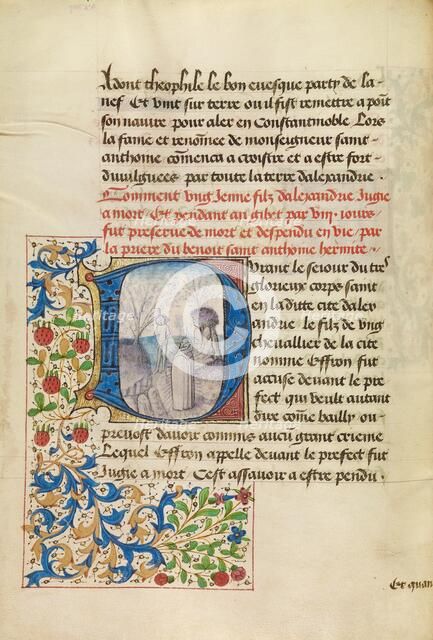 Adont theophile le bon evesque party de la
nef Et vint sur terre ou il fist remettre a point
son navire pour aler en Constantnoble Lors
la fame et renomee de monseigneur saint
anthoine comenca a croistre et a estre fort
divulguees par toute la terre dalexandrie.
Comment ung jenne filz dalexandrie Jugie
a mort Et pendant au gibet par viii. jours
fut preserve de mort et despendu en vie par
la priere du benoit saint anthoine hermite.
Durant le sejour du tres
glorieux corps saint
en la ditte cite dalex
andrie le filz de ung
chevallier de la cite
nomme Effron fut
accuse devant le pre
fect qui veult autant
dire come bailly ou
prevost davoir commis aucu grant crieme
Lequel Effron appelle devant le prefect fut
Jugie a mort Cest assavoir a estre pendu.
Et quan
heritage